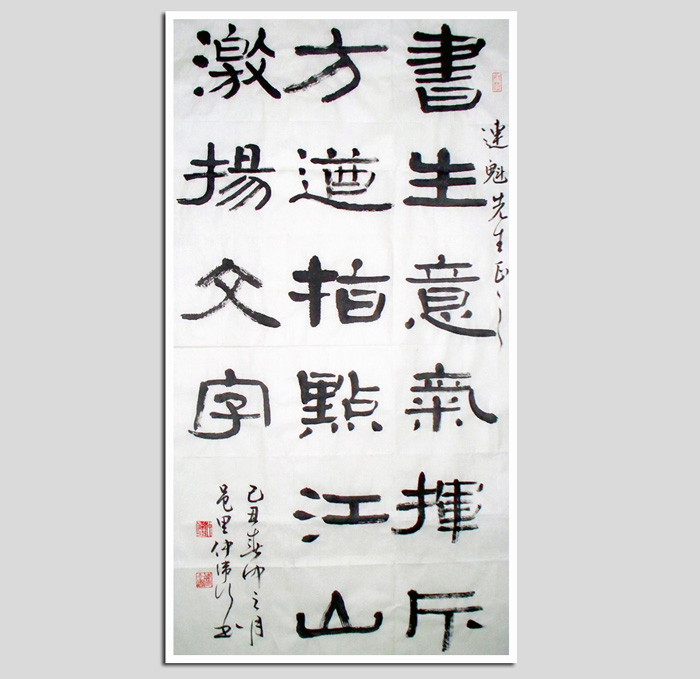 連魁先生正之
書生意氣揮斥
方遒指點江山
激揚文字
己丑春仲之月
邑里仲偉行書